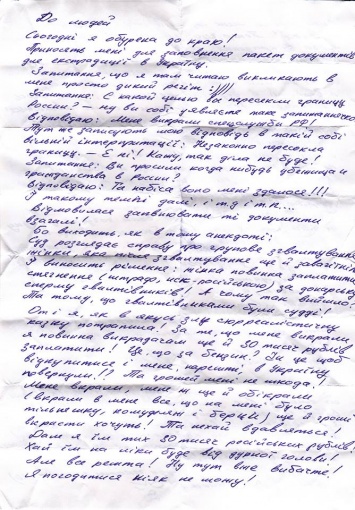 До людей
Сьогодні я обурена до краю!
Приносять мені для заповнення пакет документів
для екстрадиції в Україну.
Запитання, що я там читаю викликають в
мене просто дикий регіт :))))
Запитання: С какой целью вы пересекли границу
России? – ну ви собі уявляєте таке запитаннячко
Відповідаю: Мене викрали спецслужби РФ!
Тут же записують мою відповідь в такій собі
вільній інтерпретації: Незаконно пересекла
границу. – Е ні! Кажу, так діла не буде!
Запитання: Ви просили когда нибудь убежища и
гражданства в России?
Відповідаю: Та навіса воно мені здалося!!!
І такому темпі далі, і т.д і т.п...
Відмовилася заповнювати ті документи
взагалі!
Бо виходить, як в тому анекдоті:
Суд розглядає справу про групове зґвалтування
жінки, яка після зґвалтування ще й завагітніла
І виносить рішення: жінка повинна заплатити
стягнення (штраф, иск. російською) за донорську
сперму ґвалтівників! А чому так вийшло?
Та тому, що ґвалтівниками були судді!
От і я, як в якусь злу сюрреалістичну
казку потрапила! За те, що мене викрали
я повинна викрадачам ще й 30 тисяч рублів
заплатити! Це, що за бензин? Чи це щоб
відкупитися і мене, нарешті, в Україну
повернули!? Та грошей мені не шкода!
Мене вкрали, мене ж ще й обікрали
(вкрали в мене все, що на мені було
тільняшку, камуфляж і берці) ще й гроші
вкрасти хочуть! Та нехай вдавляться!
Дам я їм тих 30 тисяч російських рублів!
Хай їм на ліки буде від дурної голови!
Але все решта! Ну тут уже вибачте!
Я погодитися ніяк не можу!